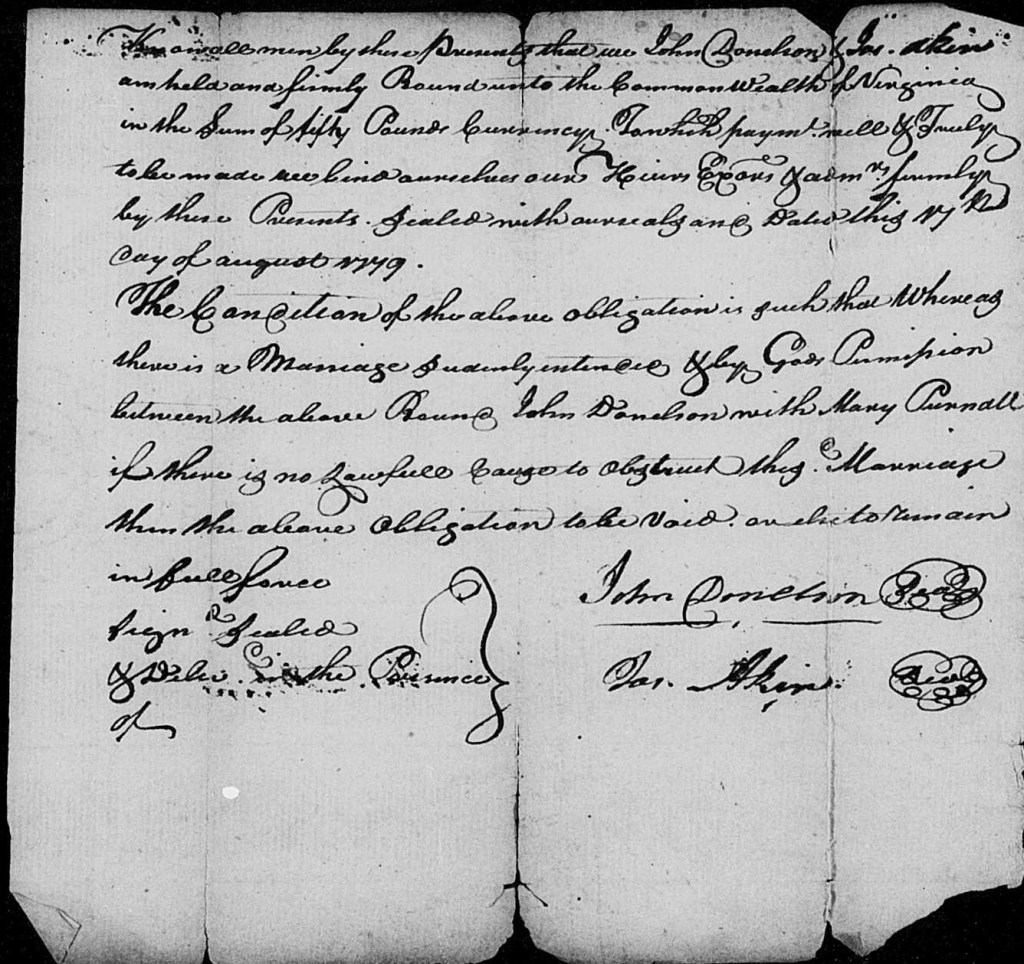 Know all men by these Presents that we John Donelson & Jas. Akin
am held and firmly Bound unto the CommonWealth of Virginia
in the Sum of fifty Pounds Currency. To which paymt. well & Truely
to be made we bind ourselves our Heirs Exors & admrs firmly
by these Presents. Sealed with our seals and Dated this 17th
day of august 1779.
The Condition of the above obligation is such that Whereas
there is a Marriage Sudenly intended & by Gods Permission
between the above Bound John Donelson with Mary Purnall
if there is no Lawfull Cause to obstruct this Marriage
then the above obligation to be void. or else to remain
in full force
Signd Sealed
& Delivd in the Presence
of
John Donelson Seal
Jas. Akin. Seal